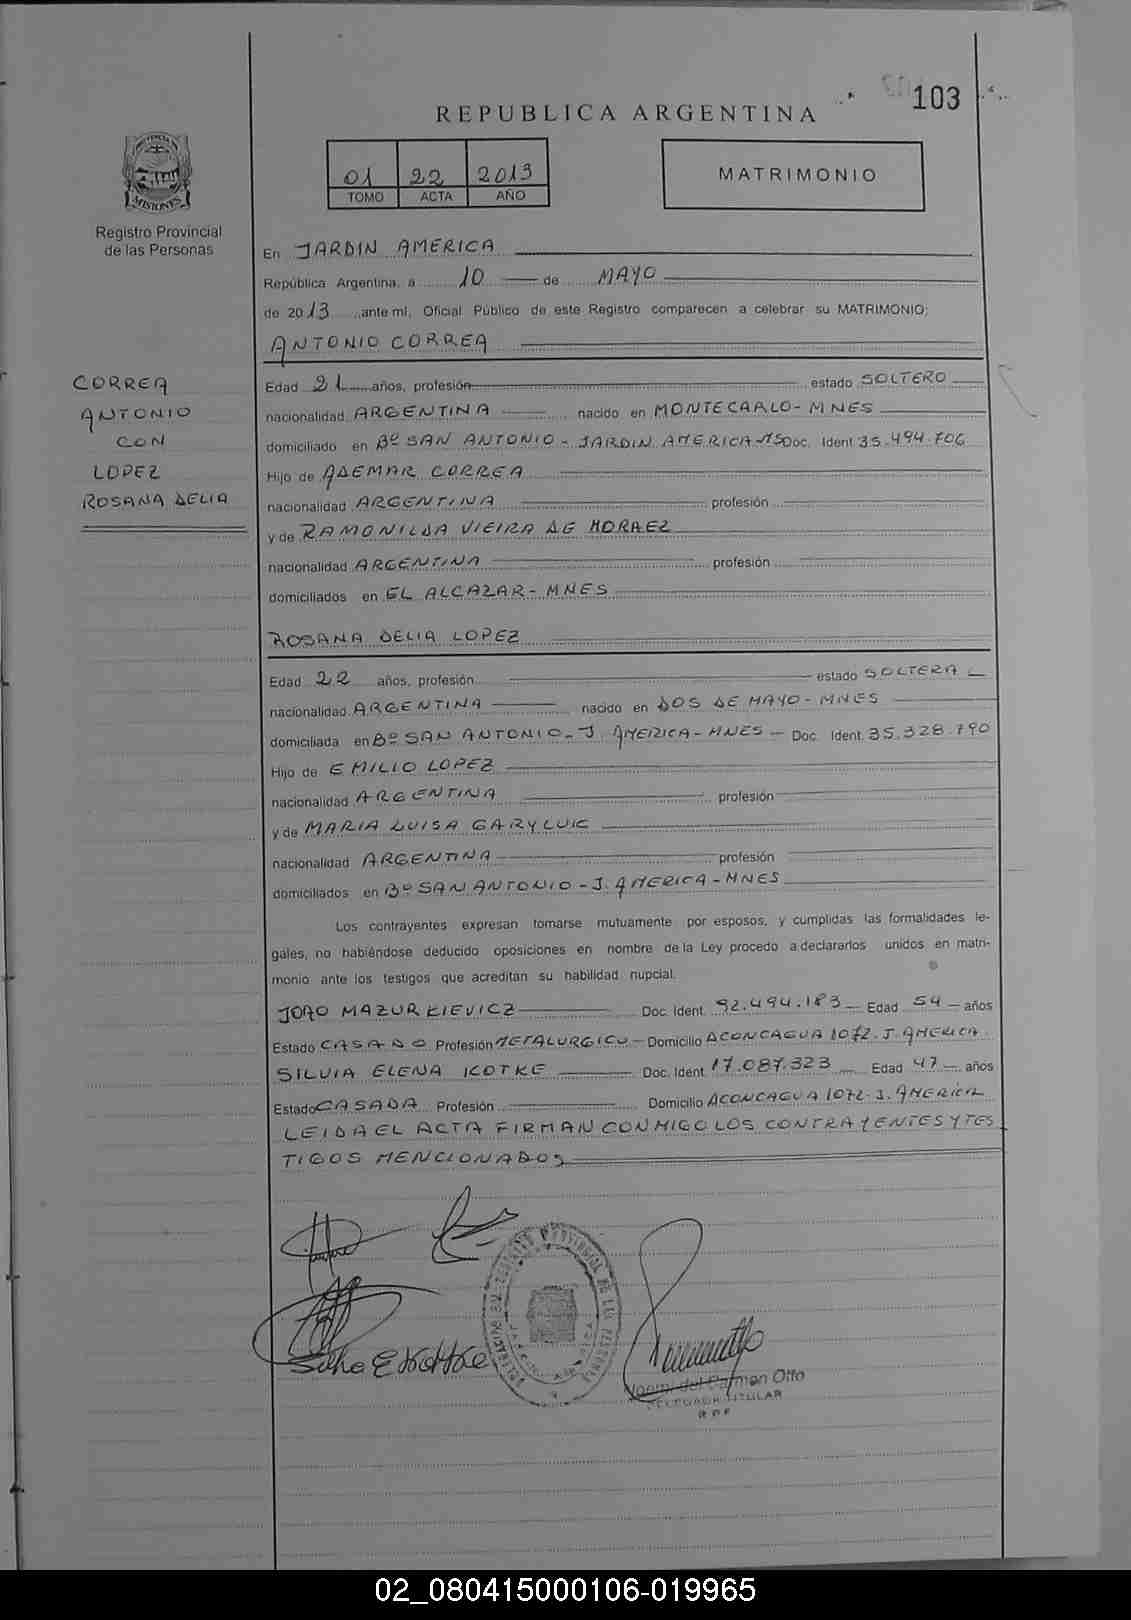 103
REPUBLICA ARGENTINA
01 22 2013
TOMO ACTA AÑO
MATRIMONIO
MISIONES
Registro Provincial
de las Personas
En JARDIN AMERICA
República Argentina, a 10 de MAYO
de 2013 ante mí, Oficial Público de este Registro comparecen a celebrar su MATRIMONIO;
ANTONIO CORREA
CORREA
ANTONIO
CON
LOPEZ
ROSANA DELIA
Edad 21 años, profesión estado SOLTERO
nacionalidad ARGENTINA nacido en MONTECARLO - MNES
domiciliado en Bº SAN ANTONIO - JARDIN AMERICA-MS Doc. Ident 35.494.706
Hijo de ADEMAR CORREA
nacionalidad ARGENTINA profesión
y de RAMONILDA VIEIRA DE MORAEZ
nacionalidad ARGENTINA profesión
domiciliados en EL ALCAZAR - MNES
ROSANA DELIA LOPEZ
Edad 22 años, profesión estado SOLTERA
nacionalidad ARGENTINA nacido en DOS DE MAYO - MNES
domiciliada en Bº SAN ANTONIO - J. AMERICA - MNES - Doc. Ident. 35.328.790
Hijo de EMILIO LOPEZ
nacionalidad ARGENTINA profesión
y de MARIA LUISA GARYLUIC
nacionalidad ARGENTINA profesión
domiciliados en Bº SAN ANTONIO - J. AMERICA - MNES
Los contrayentes expresan tomarse mutuamente por esposos, y cumplidas las formalidades le-
gales, no habiéndose deducido oposiciones en nombre de la Ley procedo a declararlos unidos en matri-
monio ante los testigos que acreditan su habilidad nupcial.
JOAO MAZURKIEVICZ Doc. Ident. 92.494.183 Edad 54 años
Estado CASADO Profesión METALURGICO - Domicilio ACONCAGUA 1072. J. AMERICA
SILVIA ELENA KOTKE Doc. Ident. 17.087.323 Edad 47 años
Estado CASADA Profesión Domicilio ACONCAGUA 1072. J. AMERICA
LEIDA EL ACTA FIRMAN CONMIGO LOS CONTRAYENTES Y TES
TIGOS MENCIONADOS
Silvia E Kottke
del Carmen Otto
DELEGADA TITULAR
R P P
02_080415000106-019965